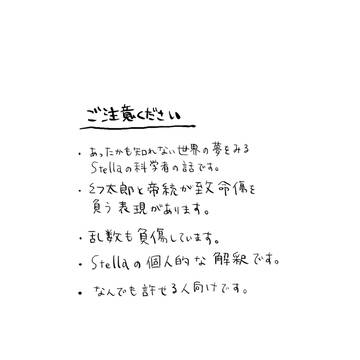 ご注意ください
・あったかも知れない世界の夢をみる
Stellaの科学者の話です。
・幻太郎と帝統が致命傷を
負う表現があります。
・乱数も負傷しています。
・Stellaの個人的な解釈です。
・なんでも許せる人向けです。